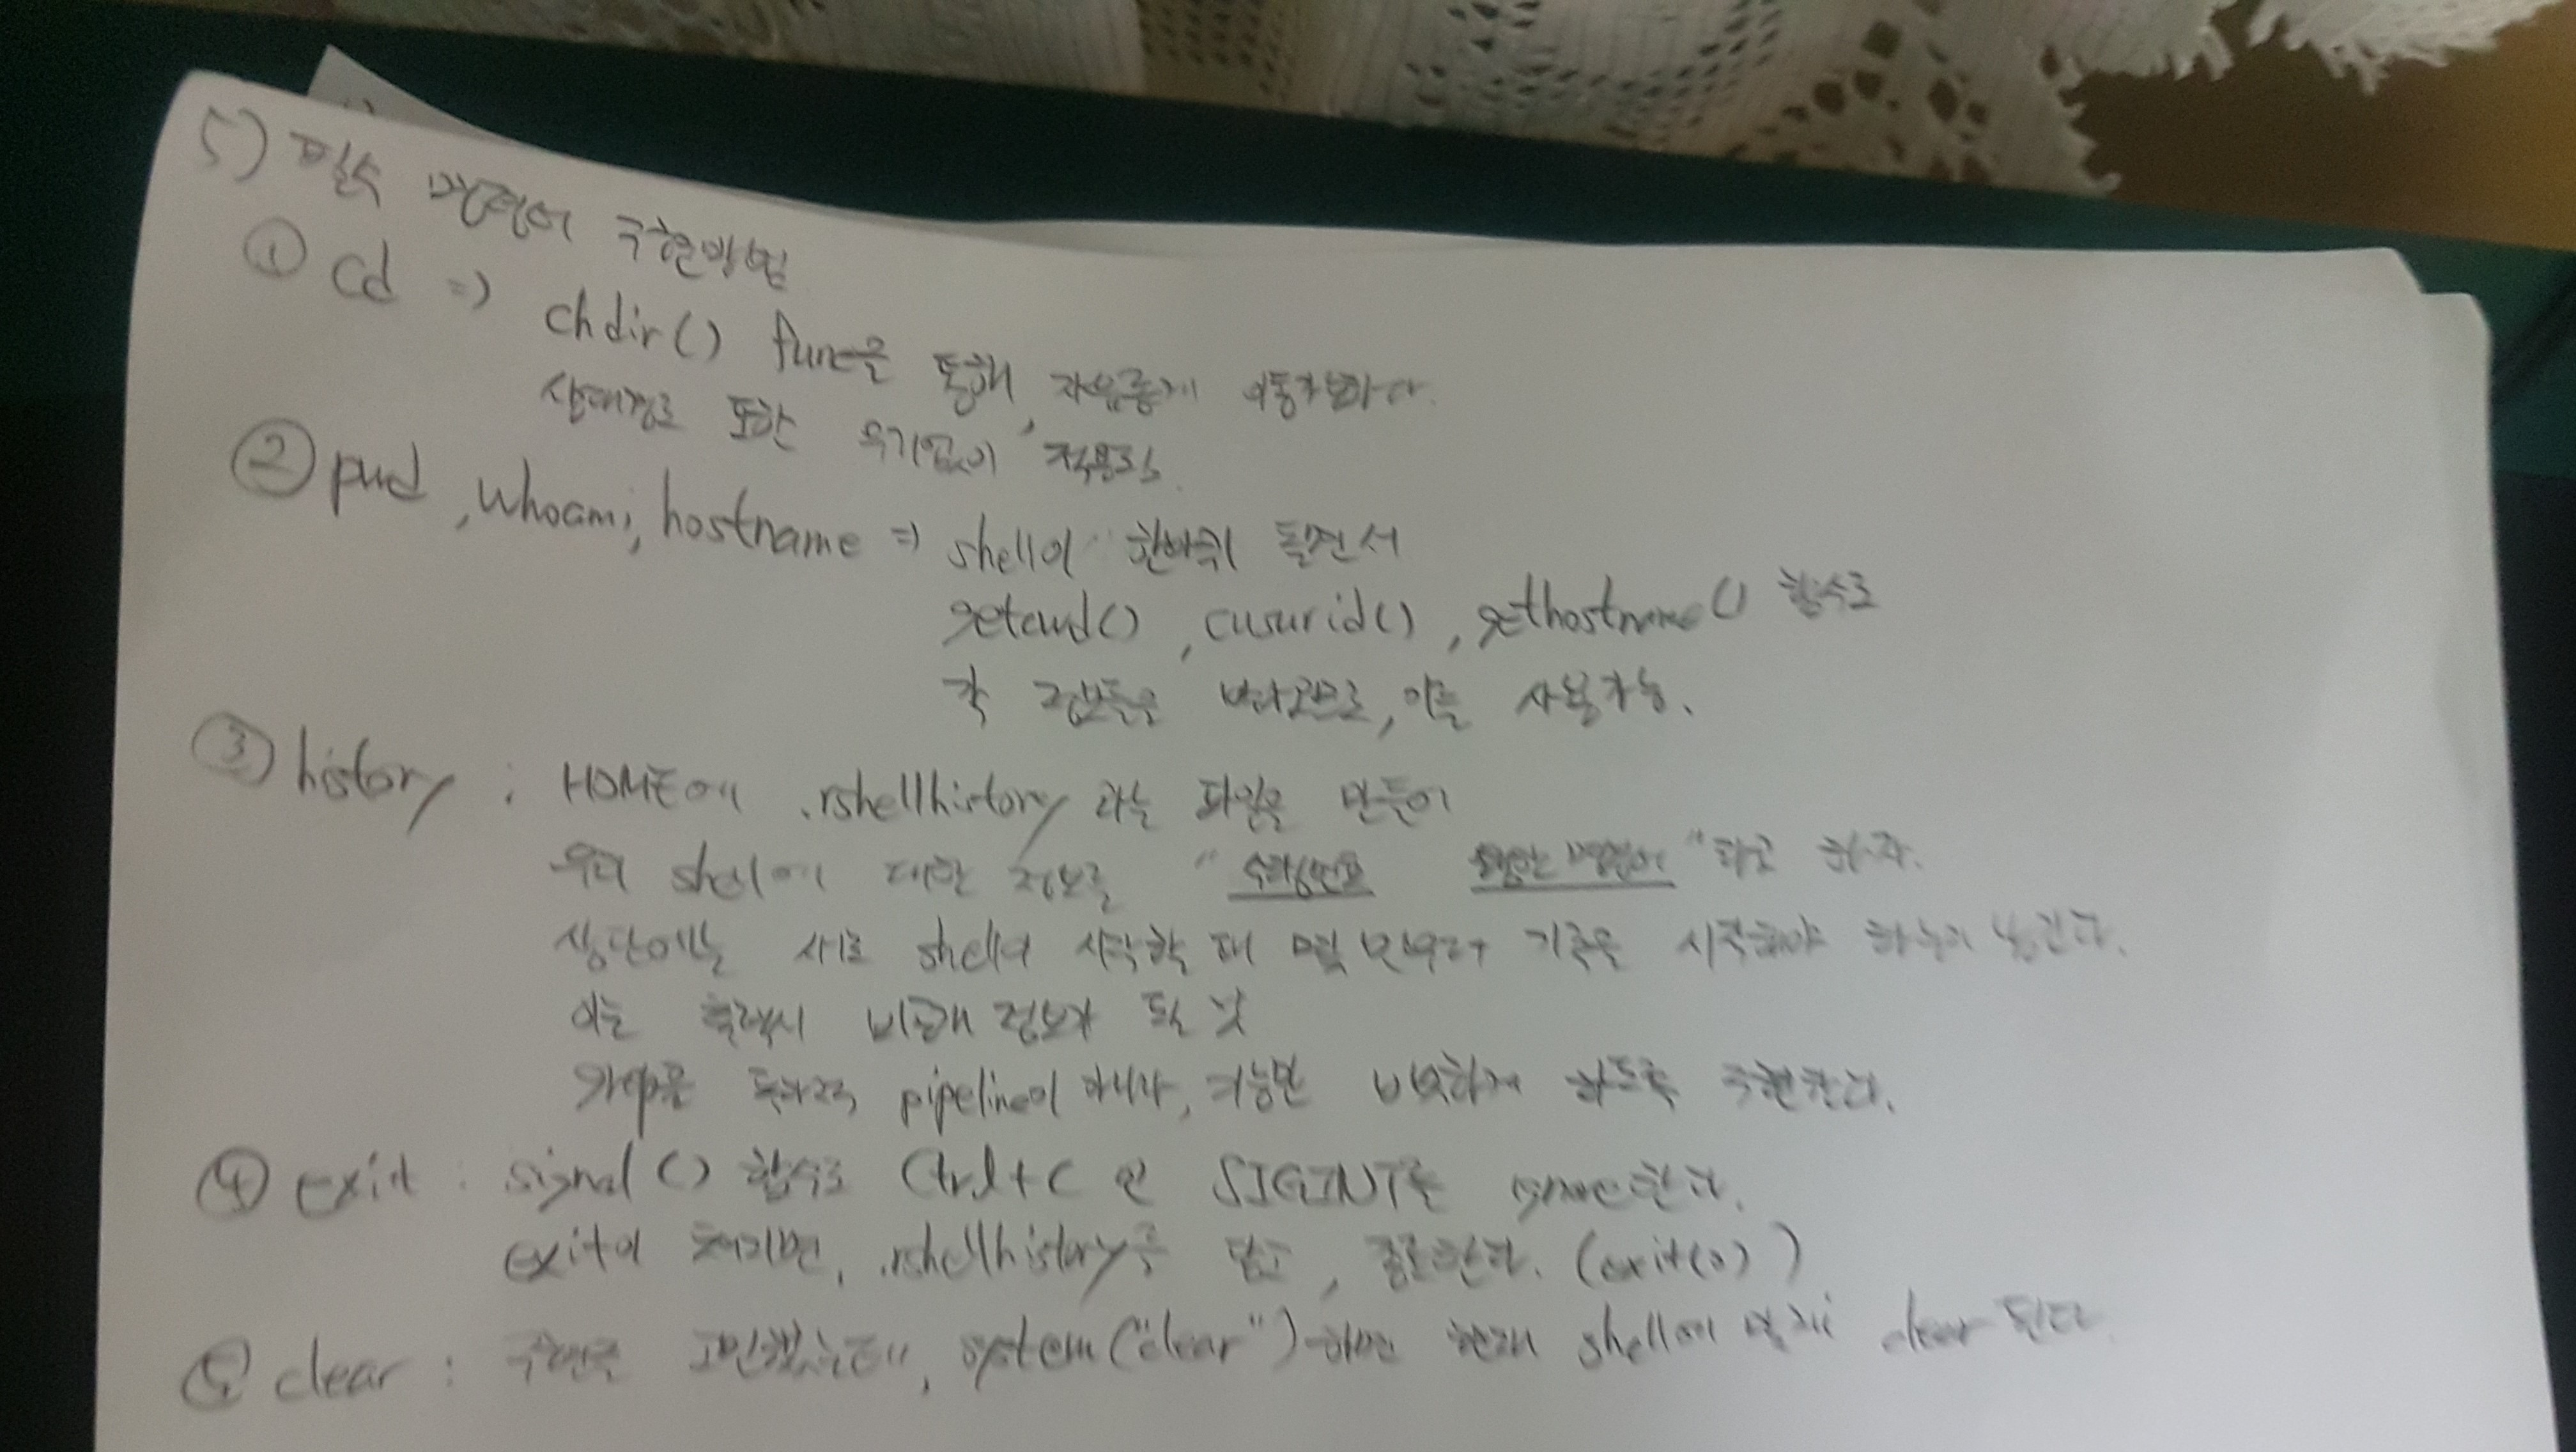 5) 필수 명령어 구현방법
① cd => chdir() func을 통해, 자유롭게 이동가능하다.
상대경로 또한 무리없이 적용됨.
② pwd, whoami, hostname => shell이 한바퀴 돌면서
getcwd(), cuserid(), gethostname() 함수로
각 정보들을 받아오므로, 이를 사용가능.
③ history : HOME에 .rshellhistory 라는 파일을 만들어
우리 shell에 대한 정보를 "수행번호 수행한 명령어"라고 하자.
상단에는 새로 shell이 시작할 때 몇 번부터 기록을 시작해야 하는지 남긴다.
이는 출력시 비공개 정보가 될 것
구현은 pipeline이 아니라, 기능만 비슷하게 하도록 구현한다.
④ exit : signal() 함수로 Ctrl+C 인 SIGINT를 ignore한다.
exit이 쳐지면, .rshellhistory를 닫고, 종료한다. (exit(0))
⑤ clear : 구현을 고민했는데, system("clear")하면 현재 shell에 맞게 clear 된다.